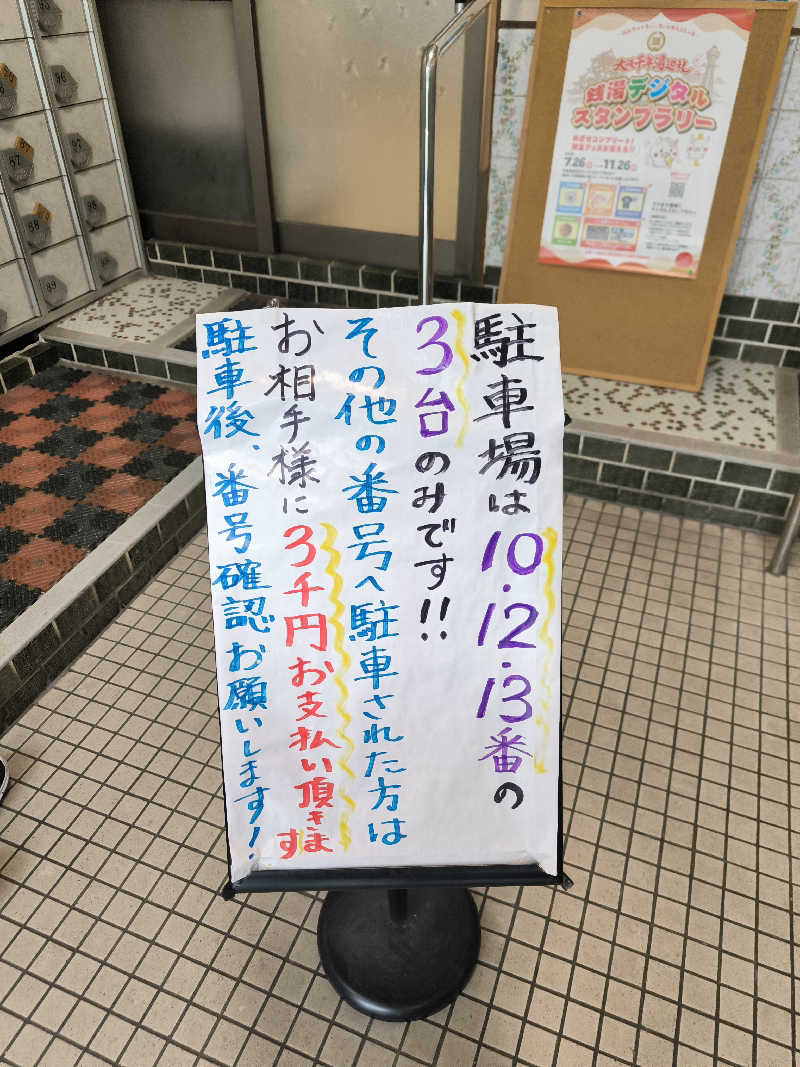 駐車場は10.12.13番の
3台のみです!!
その他の番号へ駐車された方は
お相手様に3千円お支払い頂きます
駐車後、番号確認お願いします!
銭湯デジタル
スタンプラリー
7.26
11.26
96
87
88
89